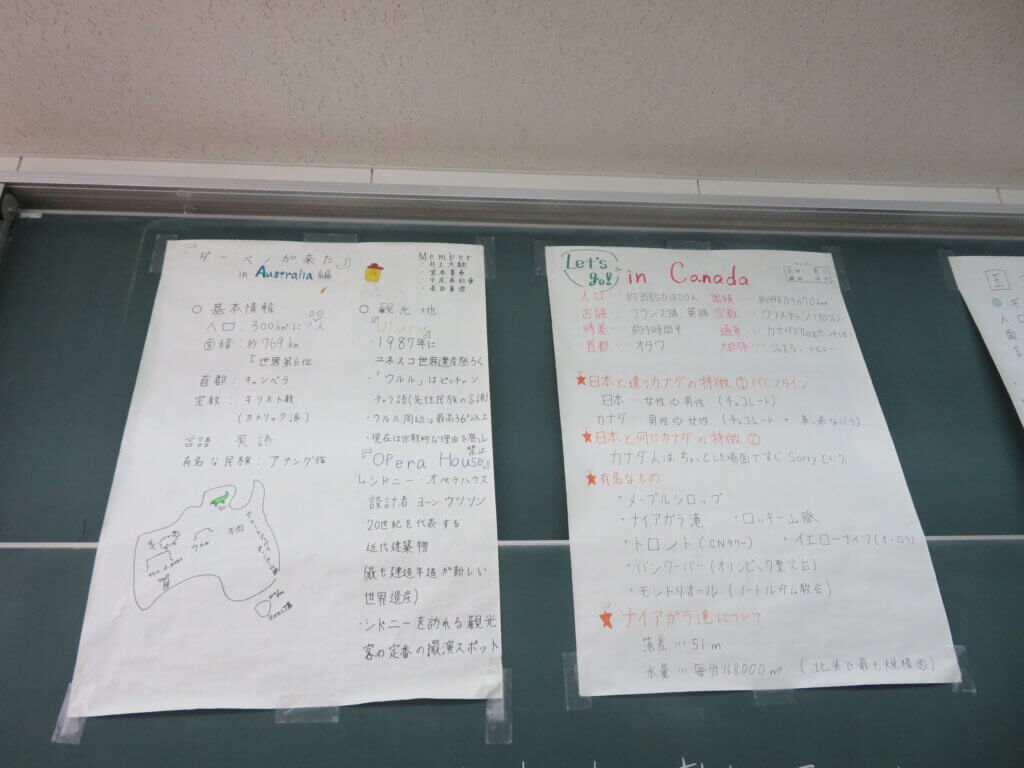 『ダーベノが来た』
in Australia 編
Member
・宮本夏希
○ 基本情報
人口：300km²に9人
面積：約769km
世界第6位
首都：キャンベラ
宗教：キリスト教
(カトリック派)
言語：英語
有名な民族：アナング族
牛
ウルル
牛肉
タスマニア島
○ 観光地
『Uluru』
・1987年に
ユネスコ世界遺産登ろく
・「ウルル」はピッチャン
チャラ語(先住民族の言語)
・ウルル周辺は最高36℃以上
・現在は宗教的な理由で登山
禁止
『Opera House』
↳シドニー・オペラハウス
設計者 ヨーン・ウツソン
20世紀を代表する
近代建築物
(最も建造年造が新しい
世界遺産)
・シドニーを訪れる観光
客の定番の撮演スポット
Let's go! in Canada
人口…約3585万1800人 面積…
言語…フランス語、英語 宗教…クリスチャン
時差…約4時間半 通貨…カナダドル
首都…オタワ 大統領…ジャスティン・トルドー
★日本と違うカナダの特徴① バレンタイン
日本…女性⇨男性 (チョコレート)
カナダ…男性⇨女性 (チョコレート + 真っ赤なバラ)
★日本と同じカナダの特徴②
カナダ人はちょっとした場面ですぐSorryという。
★有名なもの
・メープルシロップ
・ナイアガラ滝 ・ロッキー山脈
・トロント(CNタワー) ・イエローナイフ(オーロラ)
・バンクーバー(オリンピック聖火台)
・モントリオール(ノートルダム教会)
★ナイアガラ滝について
落差…51m
水量…毎分168000m³ (北米で最も規模大)